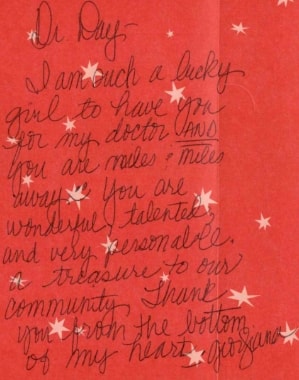 Dr. Day-
I am such a lucky
girl to have you
for my doctor AND
you are miles & miles
away. You are
wonderful, talented,
and very personable.
a treasure to our
community Thank
you from the bottom
of my heart, Georgiana